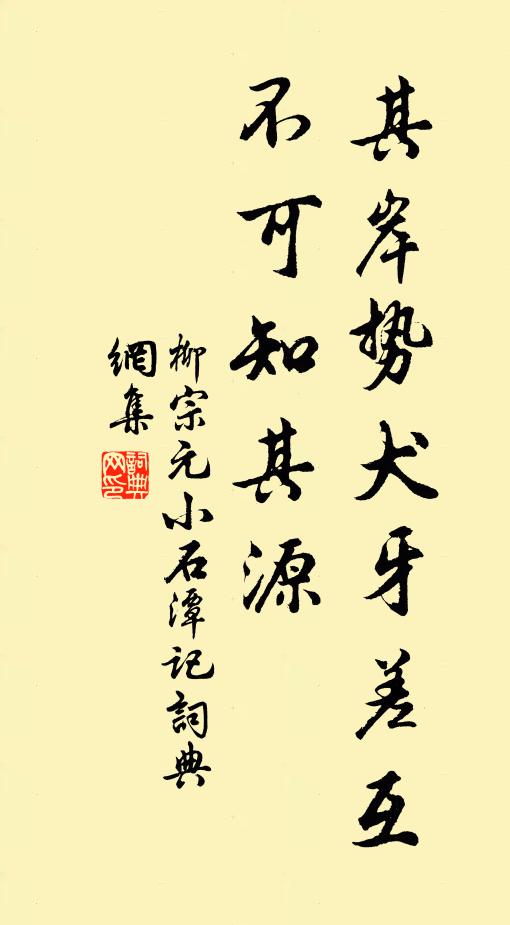 其岸势犬牙差互
不可知其源
柳宗元小石潭记詞典
網集
詞典网印